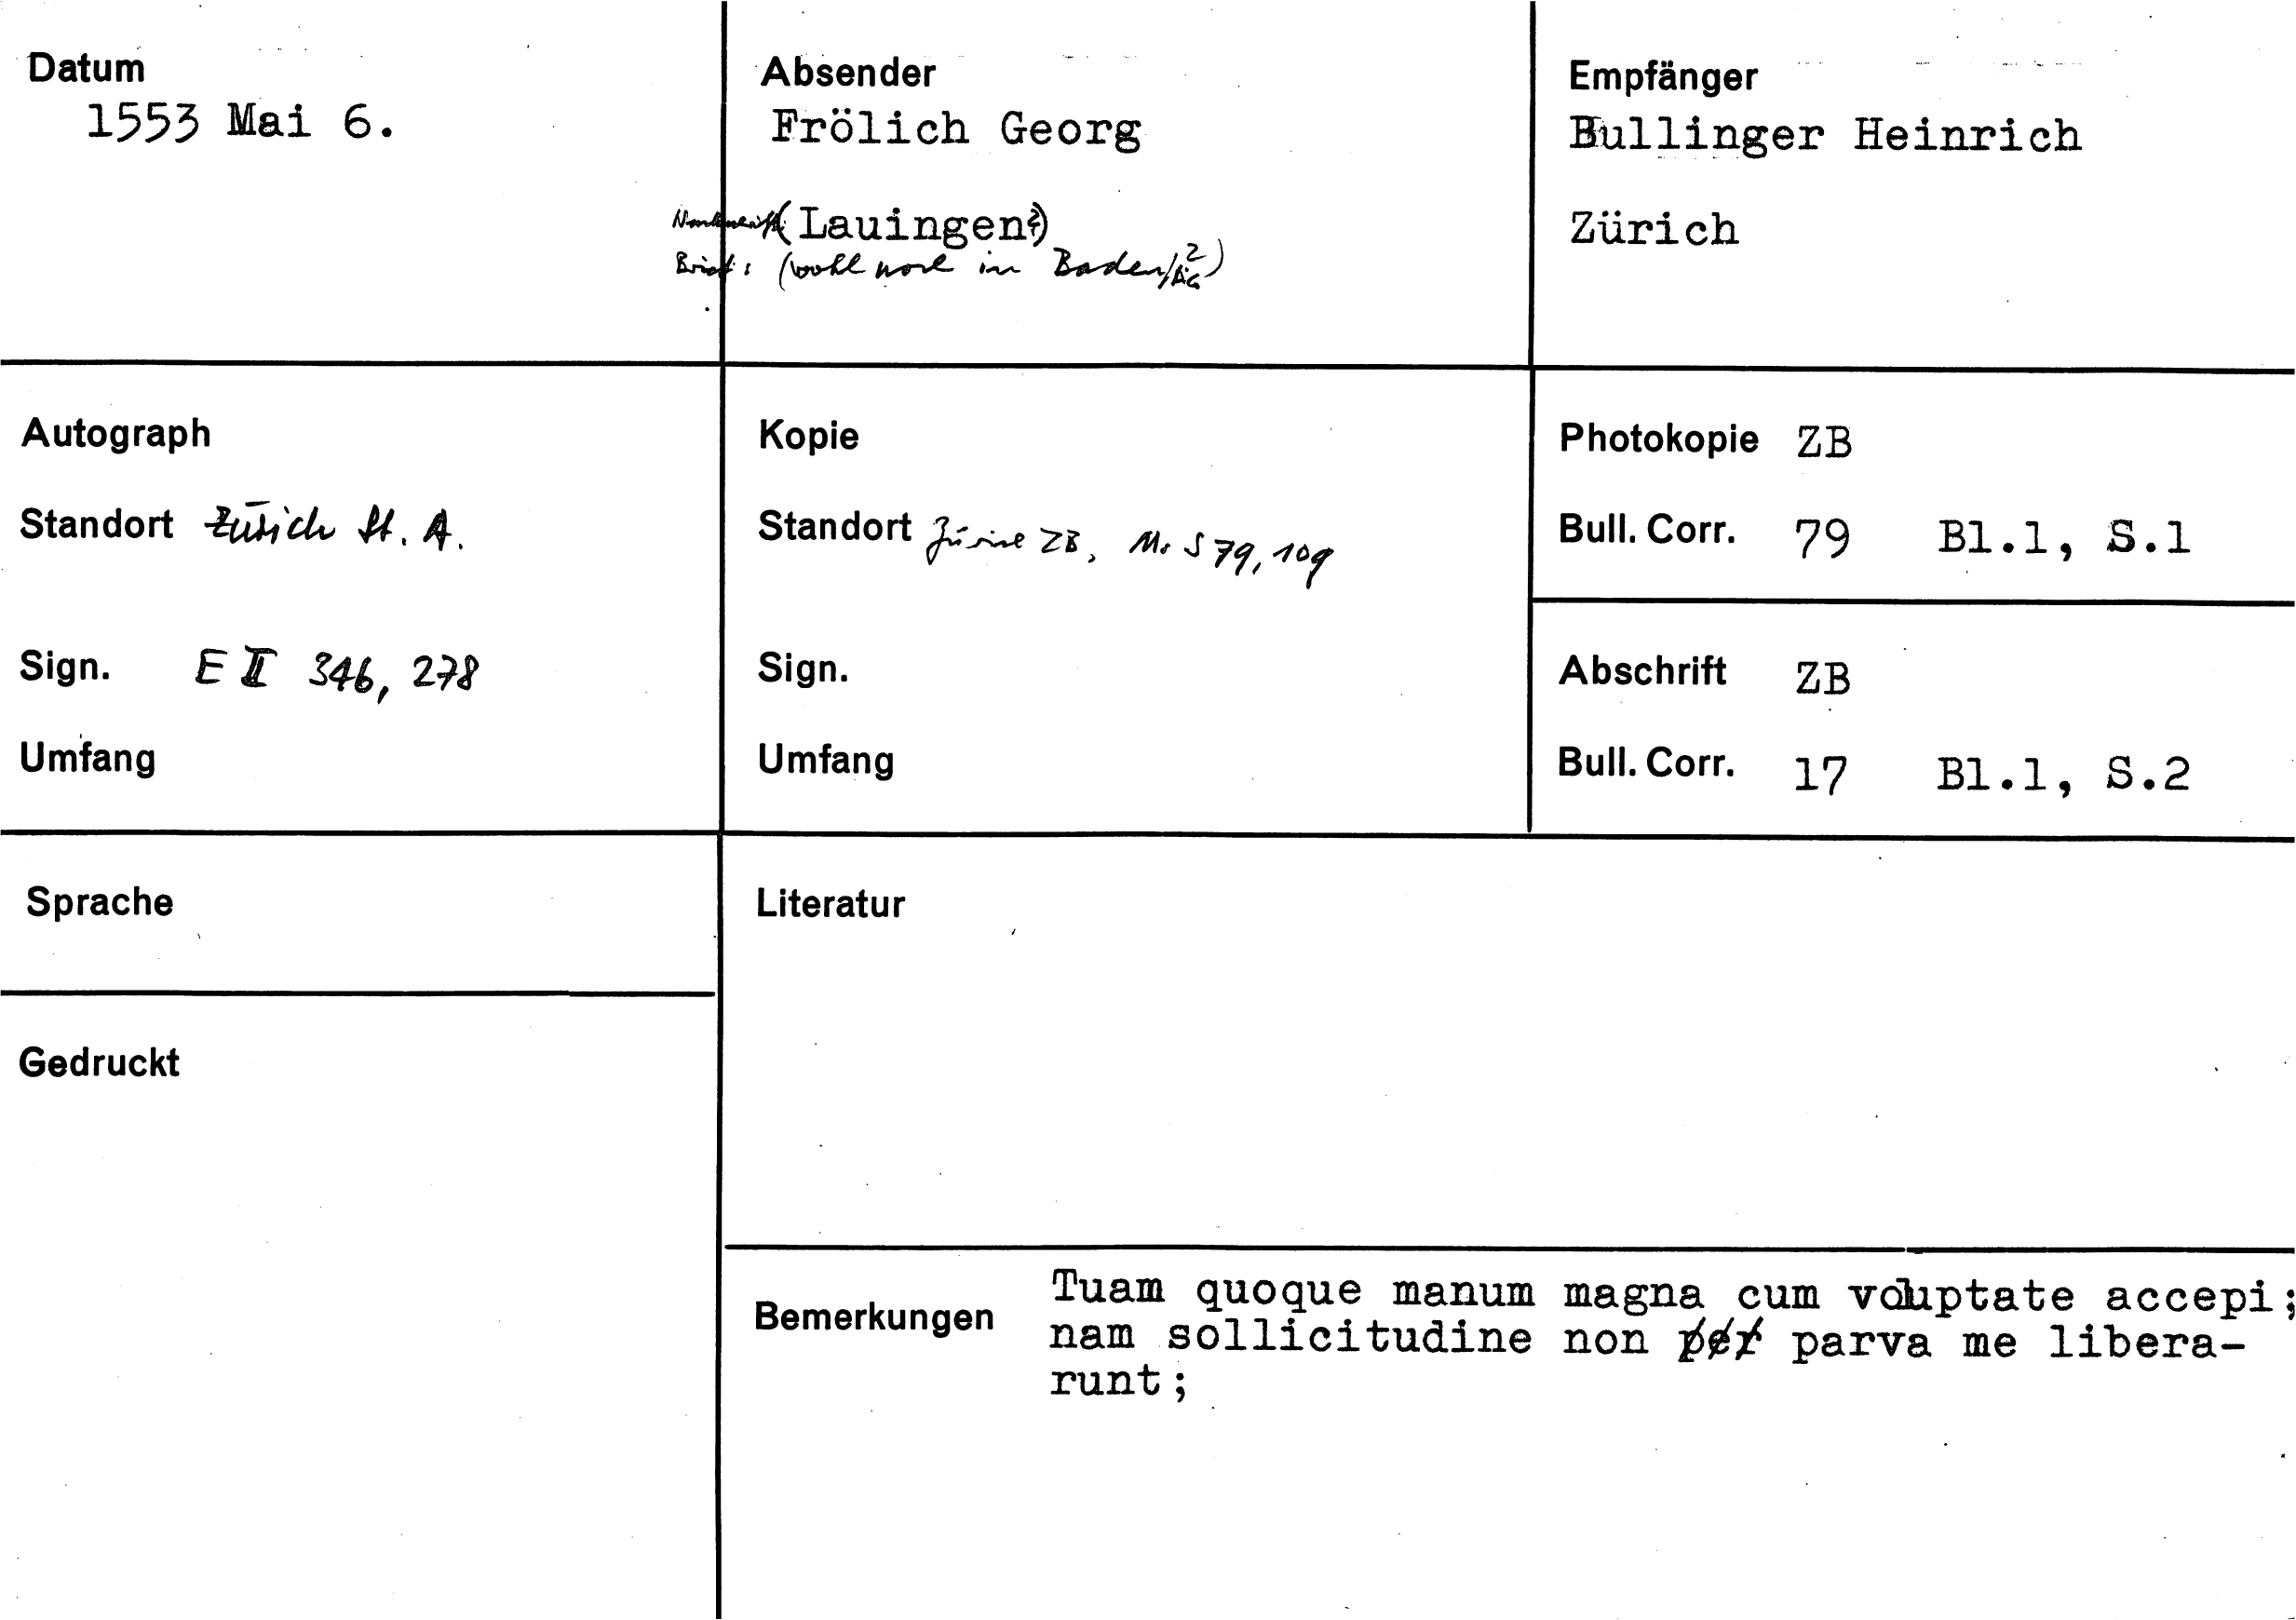 Datum
1553 Mai 6.
Absender
Frölich Georg
(Lauingen?)
Brief: (wohl noch in Baden/AG?)
Empfänger
Bullinger Heinrich
Zürich
Autograph
Standort Zürich St. A.
Sign. E II 346, 278
Umfang
Kopie
Standort Zürich ZB, Ms S 79, 109
Sign.
Umfang
Photokopie ZB
Bull. Corr. 79 Bl.1, S.1
Abschrift ZB
Bull. Corr. 17 Bl.1, S.2
Sprache
Gedruckt
Literatur
Bemerkungen
Tuam quoque manum magna cum voluptate accepi;
nam sollicitudine non per parva me libera-
runt;